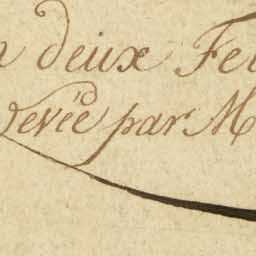 n deux Fe
Levée par M